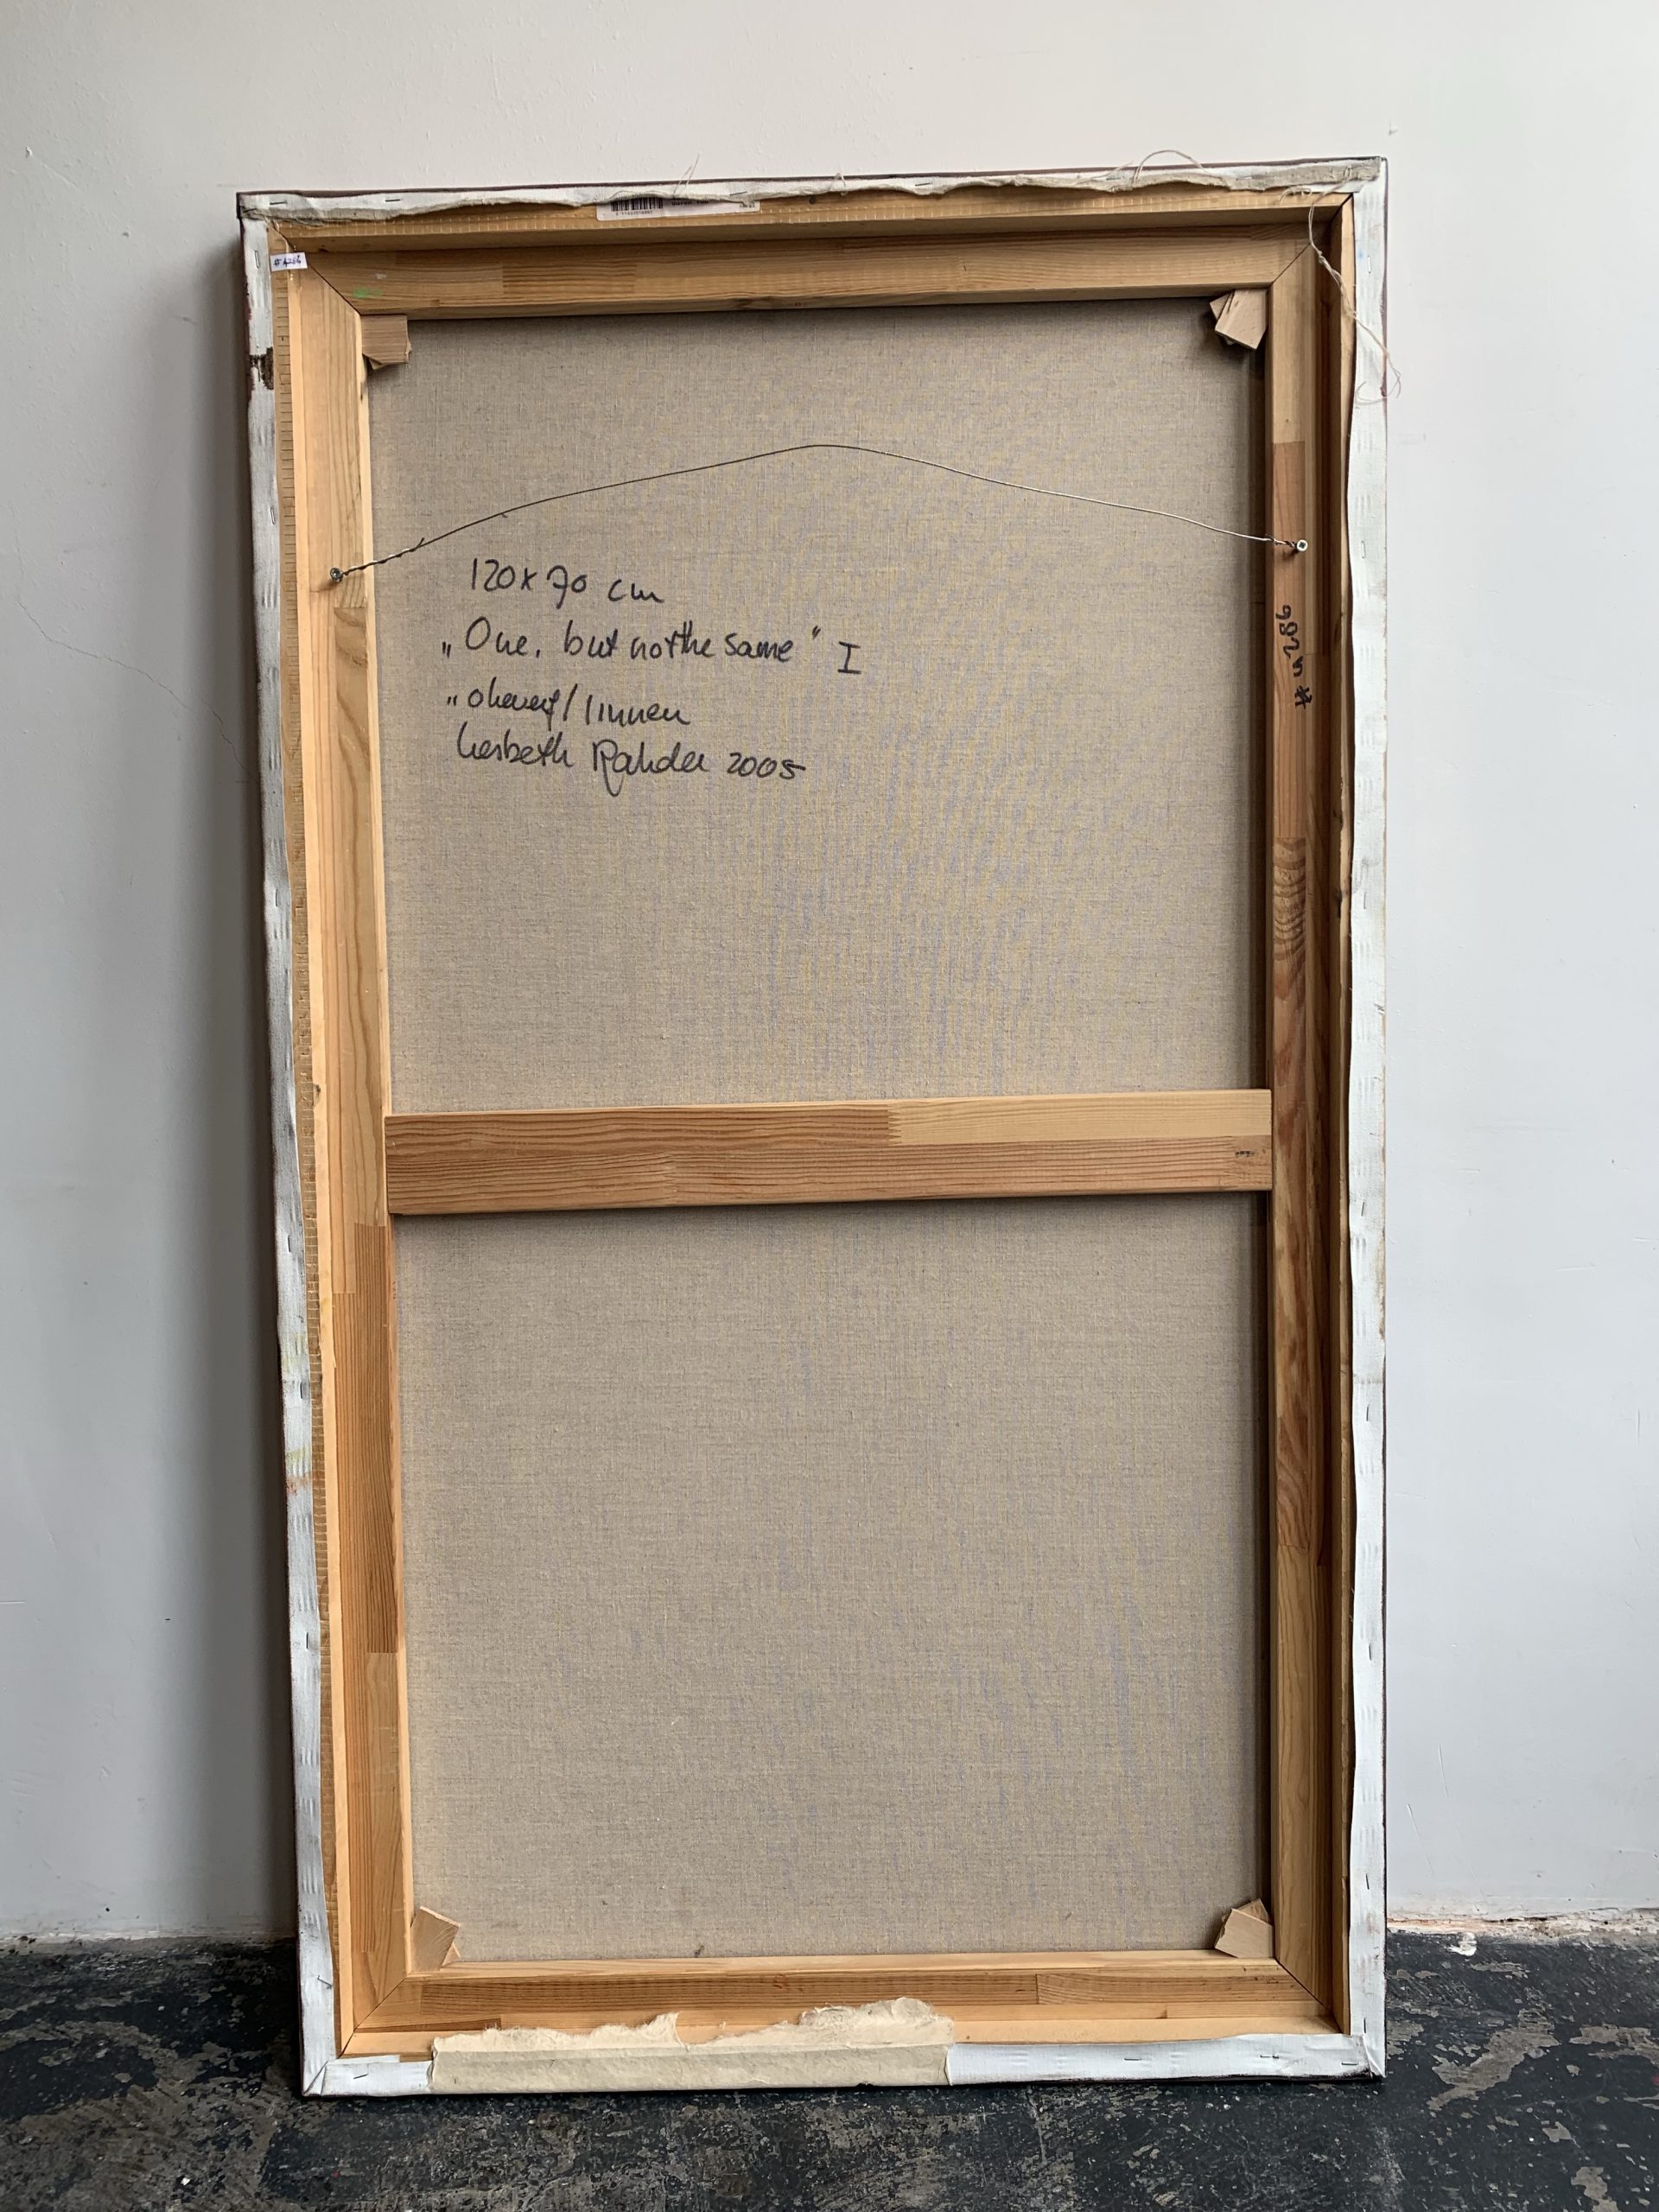 #4286
120x70 cm
„One, but not the same" I
"olieverf/linnen
Liesbeth Rahder 2005
#4286